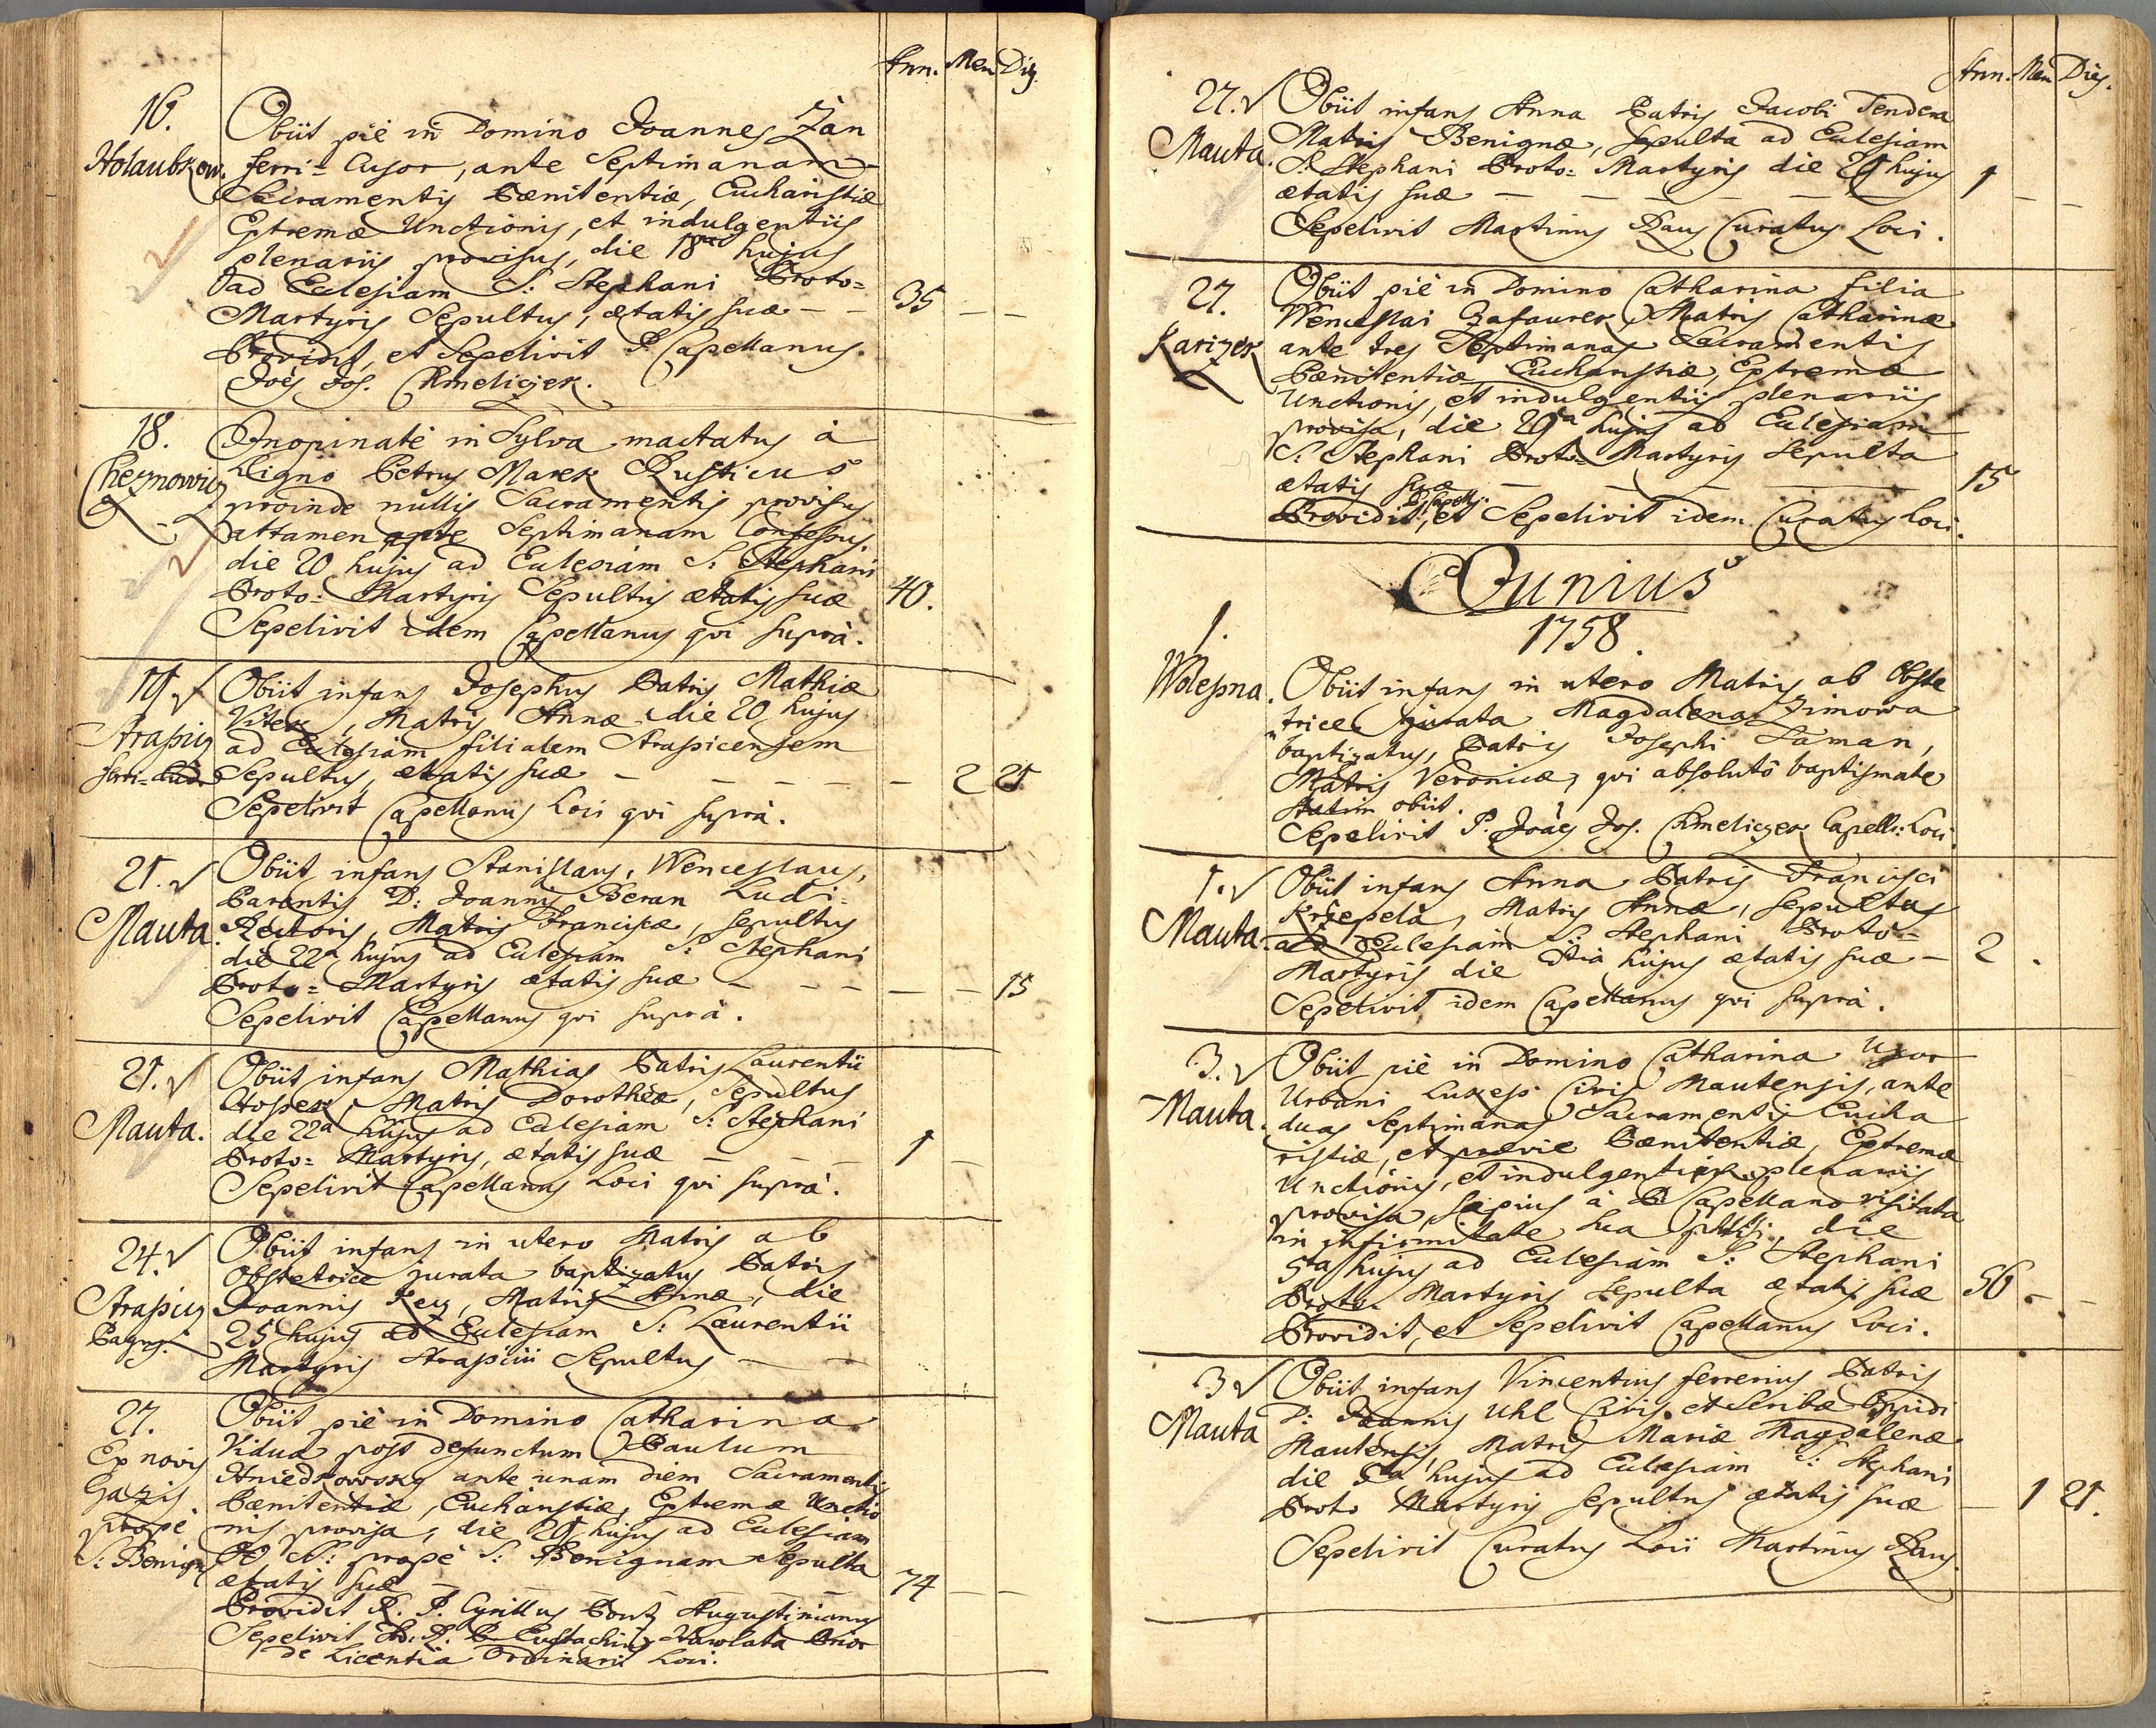 Ann. Men Dieg.
16.
Holaubkow.
Obiit piè in Domino Joannes Zan
ferri-Cusor, ante Septimanam
Sacramentis Pænitentiæ, Eucharistiæ
Extremæ Unctionis, et indulgentiis
plenariis provisus, die 18va hujus
ad Ecclesiam S: Stephani Proto=
Martyris Sepultus, ætatis suæ - - 35 - -
Providit, et Sepelivit P. Capellanus
Joës Jos. Chmeliczek.
18.
Cheznowicz
Inopinatè in Sylva mactatus à
Ligno Petrus Marek Rusticus
proinde nullis Sacramentis provisus
attamen ante Septimanam Confessus
die 20 hujus ad Ecclesiam S: Stephani
Proto= Martyris Sepultus ætatis suæ 40.
Sepelivit idem Capellanus qvi suprà.
19
Straßicz
Obiit infans Josephus Patris Mathiæ
Vitek, Matris Annæ die 20 hujus
ad Ecclesiam filialem Straßicensem
Sepultus, ætatis suæ - - - - - 2 21
Sepelivit Capellanus Loci qvi suprà.
21.
Mauta.
Obiit infans Stanislaus, Wenceslaus,
Parentis D: Joannis Beran Ludi=
Rectoris, Matris Franciscæ, sepultus
die 22a hujus ad Ecclesiam S: Stephani
Proto= Martyris ætatis suæ - - - - - 15
Sepelivit Capellanus qvi suprà.
21.
Mauta.
Obiit infans Mathias Patris Laurentii
Stopek, Matris Dorotheæ, Sepultus
die 22a hujus ad Ecclesiam S: Stephani
Proto= Martyris, ætatis suæ - - - 1 -
Sepelivit Capellanus Loci qvi suprà.
24.
Straßicz
Obiit infans in utero Matris ab
Obstetrice jurata baptizatus Patris
Joannis Key, Matris Annæ, die
25 hujus ad Ecclesiam S: Laurentii
Martyris Straßicii Sepultus - -
27.
Ex novis
Gazis
propè
S: Benign
Obiit piè in Domino Catharina
Vidua post defunctum Paulum
Hniedkowsky ante unam diem Sacramentis
Pænitentiæ, Eucharistiæ, Extremæ Unctio
nis provisa, die 29 hujus ad Ecclesiam
propè S: Benignam Sepulta
ætatis suæ - - - 74 -
Providit R. P. Cyrillus Pontz Augustinianus
Sepelivit P. Eustachius Hawlata Prior
de Licentia Ordinarii Loci.
Ann. Men Dieg.
27.
Mauta.
Obiit infans Anna Patris Jacobi Tendera
Matris Benignæ, sepulta ad Ecclesiam
S. Stephani Proto= Martyris die 29 hujus
ætatis suæ - - - - - - 1 - -
Sepelivit Martinus Raus Curatus Loci.
27.
Karizek
Obiit piè in Domino Catharina filia
Wenceslai Zafaurek, Matris Catharinæ
ante tres Septimanas Sacramentis
Pænitentiæ, Eucharistiæ, Extremæ
Unctionis, et indulgentiis plenariis
provisa, die 29a hujus ad Ecclesiam
S: Stephani Proto= Martyris Sepulta
ætatis suæ - - - 15
Providit P. Capell: et Sepelivit idem Curatus Loci.
Junius
1758.
1.
Woleßna.
Obiit infans in utero Matris ab Obste
trice jurata Magdalena Zimowa
baptizatus, Patris Josephi Taman,
Matris Veronicæ, qvi absolutô baptismate
statim obiit.
Sepelivit P: Joäes Jos. Chmeliczek Capell: Loci.
1.
Mauta.
Obiit infans Anna Patris Francisci
Krzepela, Matris Annæ, sepultus
ad Ecclesiam S: Stephani Proto=
Martyris die 3tia hujus ætatis suæ - 2 .
Sepelivit idem Capellanus qvi suprà.
3.
Mauta.
Obiit piè in Domino Catharina Uxor
Urbani Lukeß Civis Mautensis, ante
duas Septimanas Sacramentis Eucha
ristiæ, et prævie Pænitentiæ, Extremæ
Unctionis, et indulgentiis plenariis
provisa, sæpius à P. Capellano visitata
in infirmitate sua, die
5ta hujus ad Ecclesiam S: Stephani
Proto= Martyris sepulta ætatis suæ 56 - -
Providit, et Sepelivit Capellanus Loci.
3
Mauta
Obiit infans Vincentius ferrerius Patris
D: Joannis Uhl Civis, et Scribæ Oppidi
Mautensis, Matris Mariæ Magdalenæ
die 5ta hujus ad Ecclesiam S: Stephani
Proto Martyris sepultus ætatis suæ - 1 21.
Sepelivit Curatus Loci Martinus Raus.